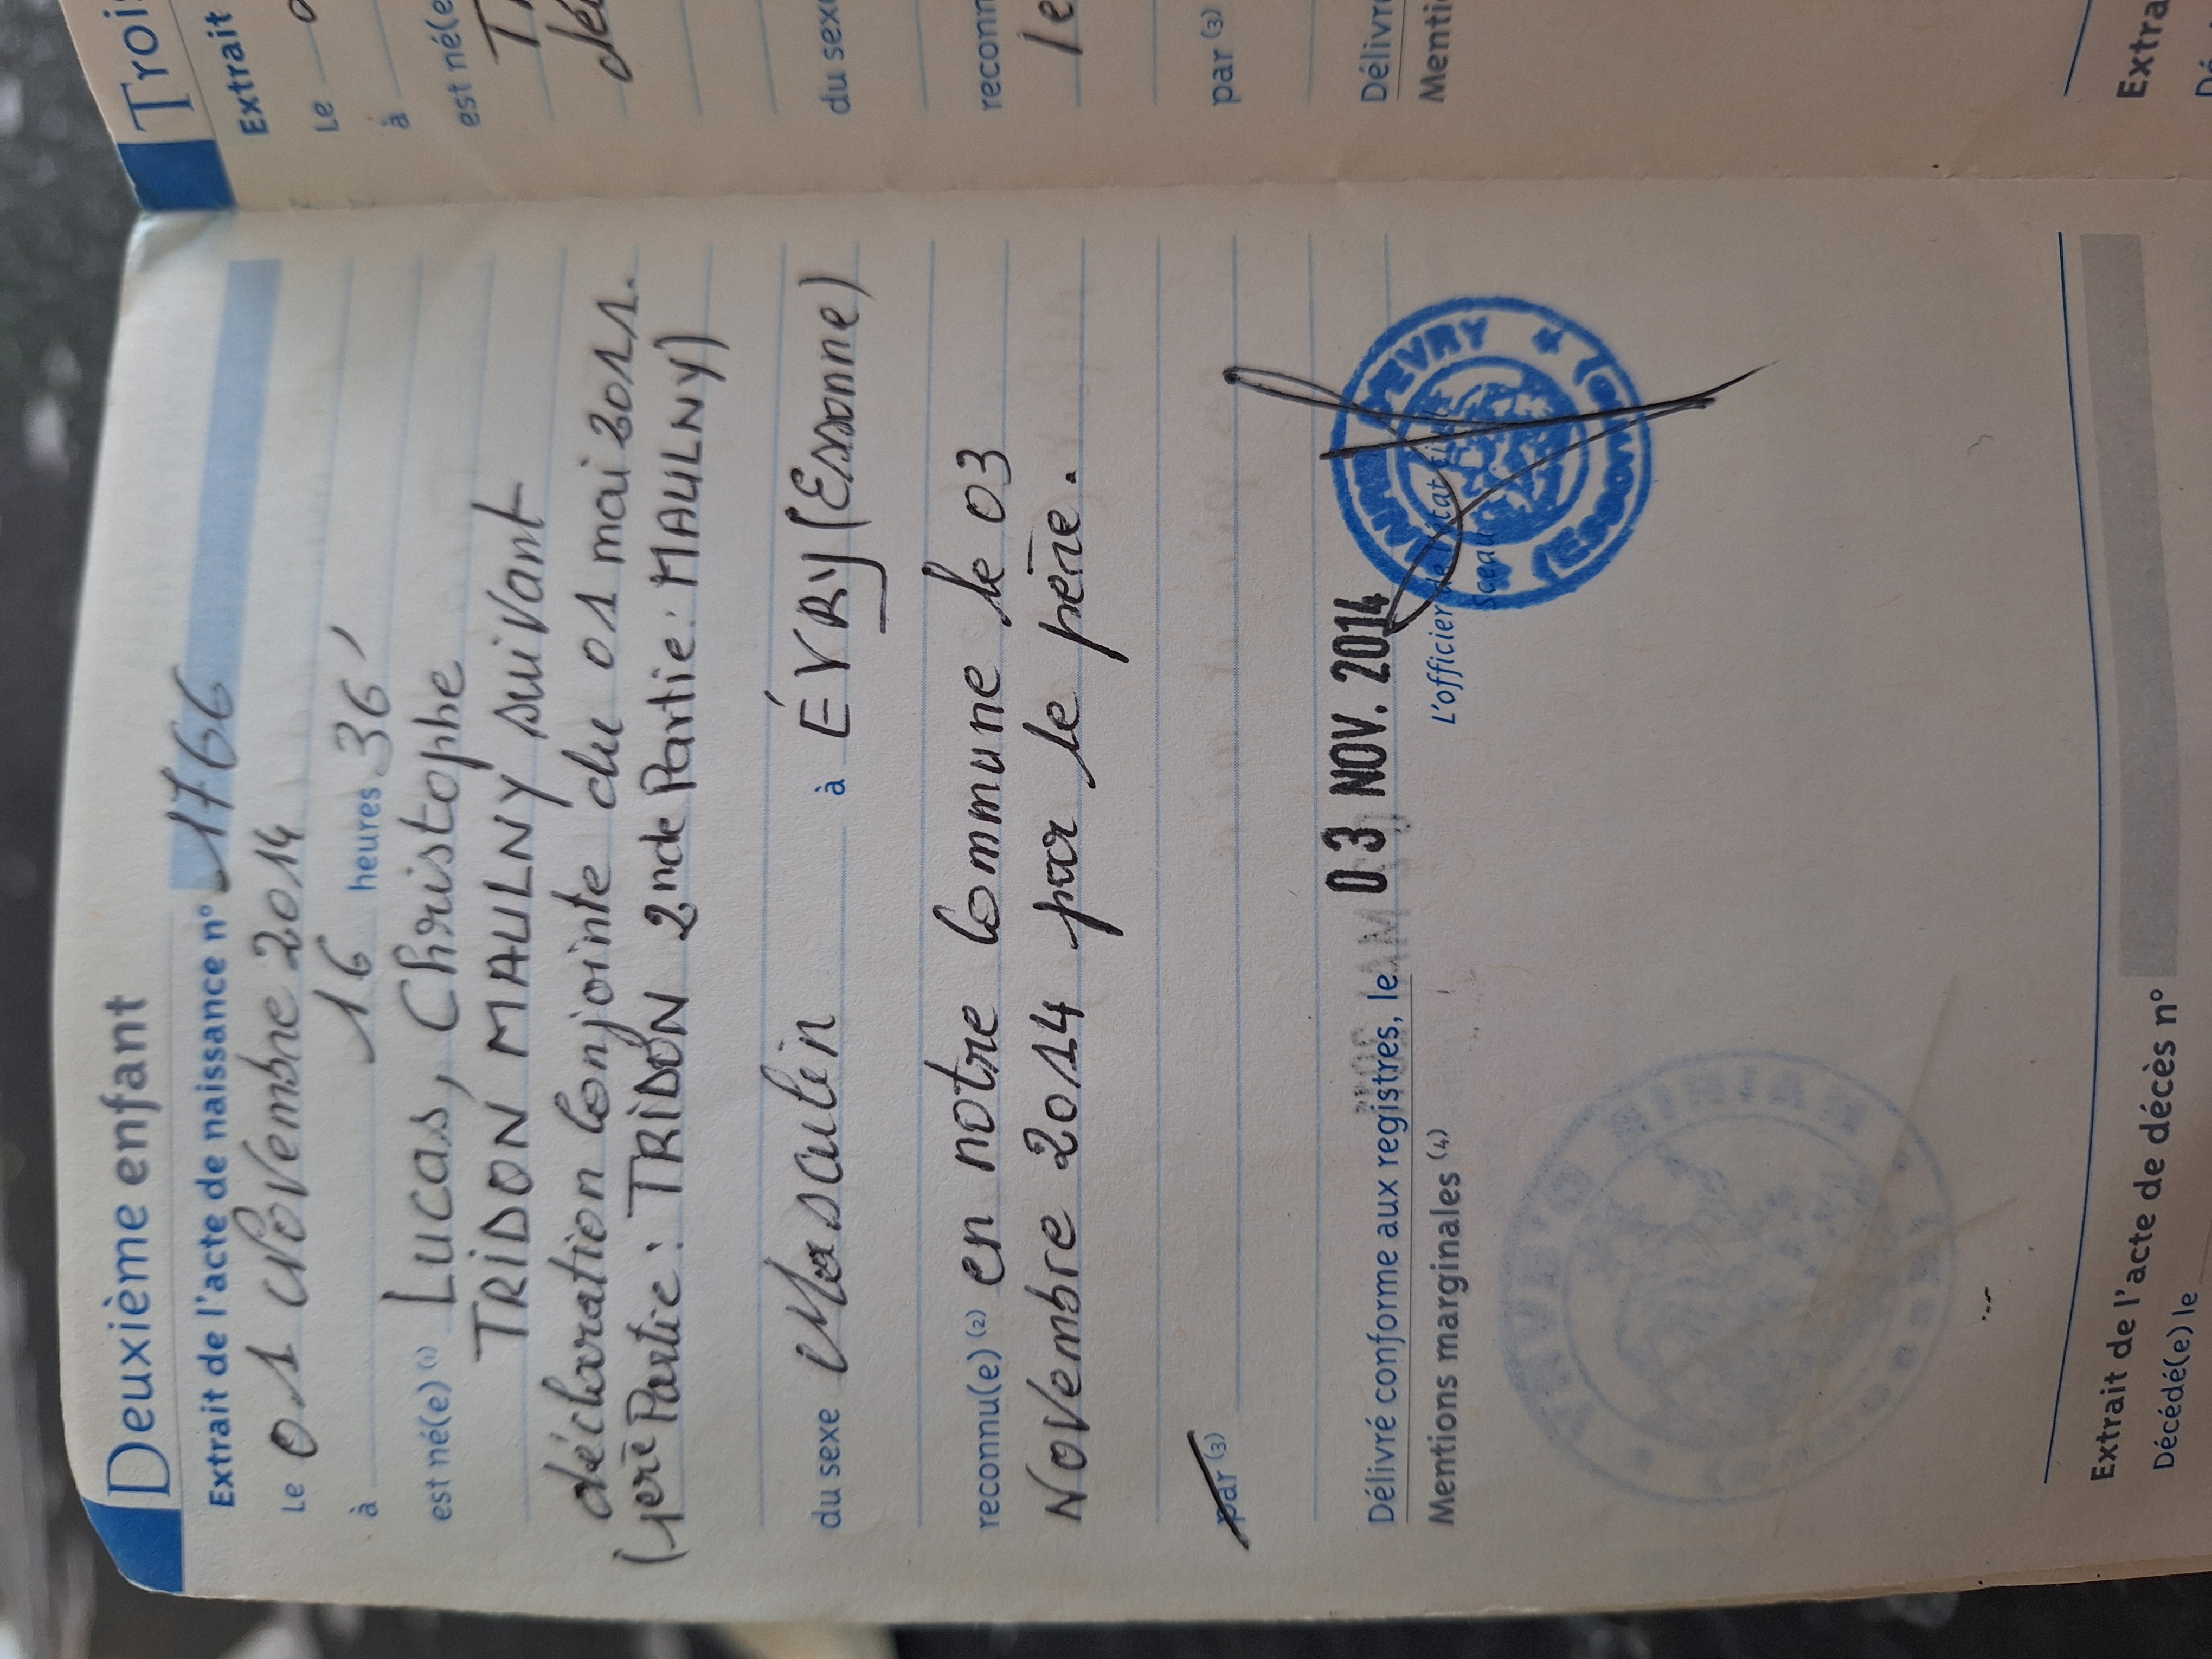 Deuxième enfant
Extrait de l'acte de naissance n° 1766
Le 01 Novembre 2014
à 16 heures 36'
est né(e) (1) Lucas, Christophe
TRIDON MAULNY suivant
déclaration conjointe du 01 mai 2011.
(1ère Partie : TRIDON 2nde Partie : MAULNY)
du sexe Masculin à ÉVRY (Essonne)
reconnu(e) (2) en notre commune le 03
Novembre 2014 par le père.
par (3)
Délivré conforme aux registres, le 03 NOV. 2014
L'officier de l'état civil
Sceau
MAIRIE D'EVRY * (ESSONNE)
Mentions marginales (4)
Extrait de l'acte de décès n°
Décédé(e) le
Trois
Extrait
Le
à
est né(e
du sexe
reconn
le
par (3)
Délivré
Menti
Extra
Dé